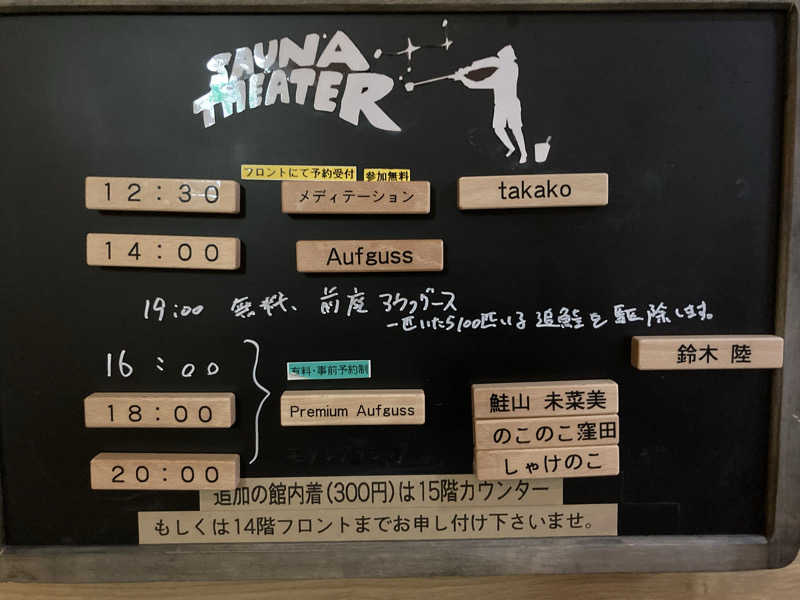 SAUNA
THEATER
フロントにて予約受付 参加無料
12:30 メディテーション takako
14:00 Aufguss
19:00 無料、前座アウフグース
一匹いたら100匹いる追鮭を駆除します。
鈴木 陸
16:00 有料・事前予約制
18:00 Premium Aufguss 鮭山 未菜美
のこのこ窪田
20:00 しゃけのこ
追加の館内着(300円)は15階カウンター
もしくは14階フロントまでお申し付け下さいませ。